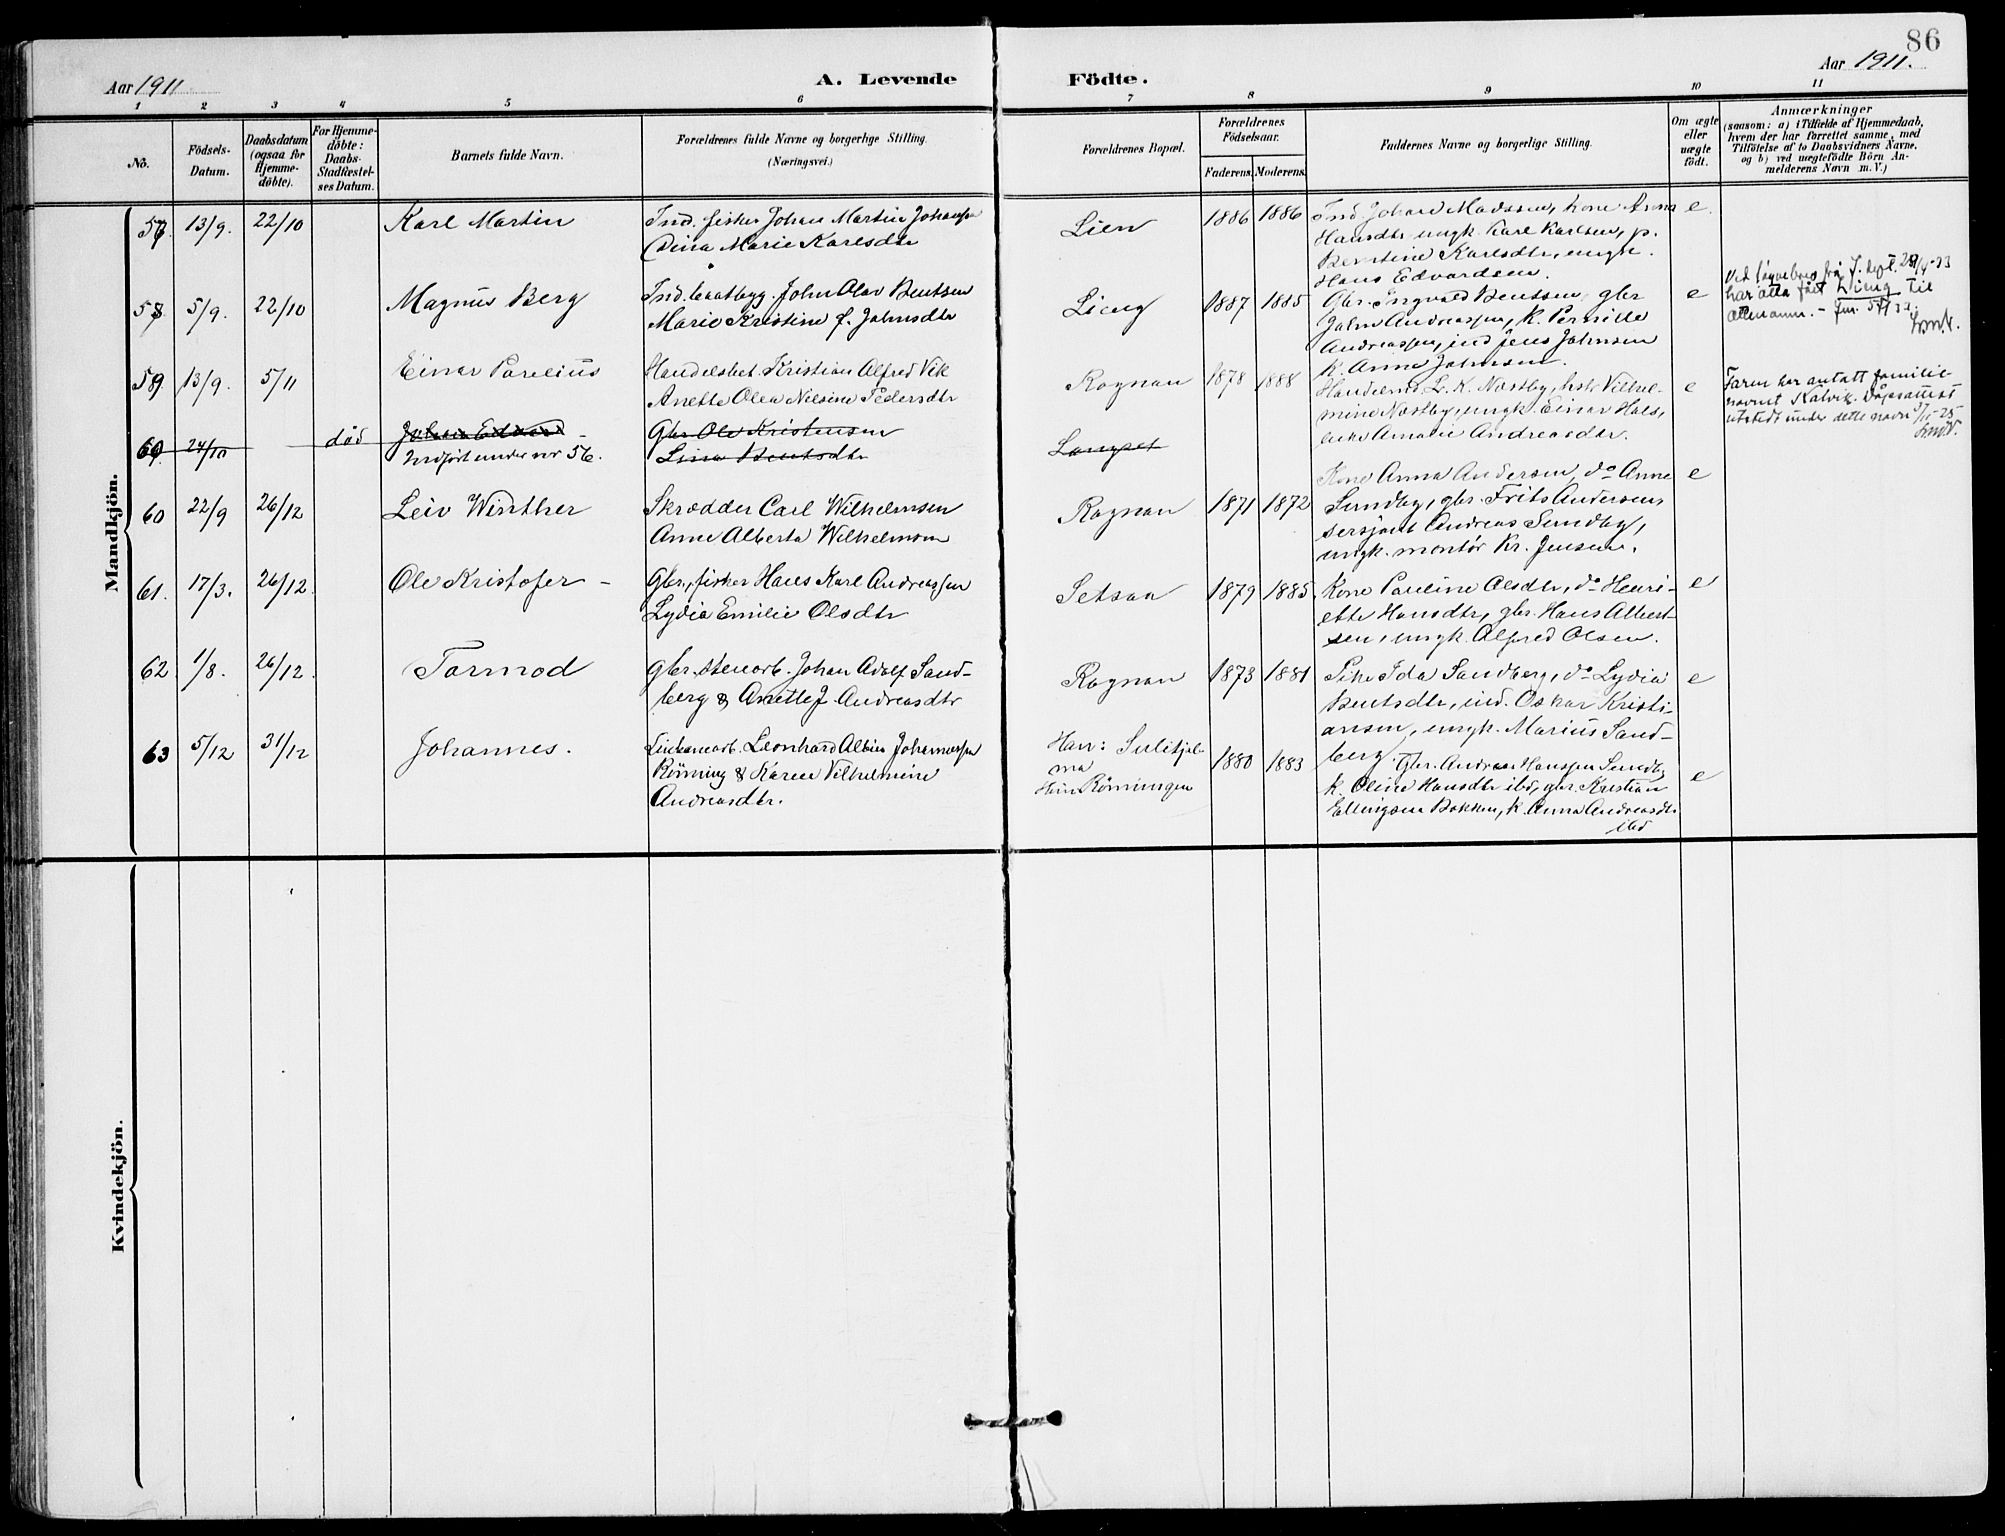 86
Aar 1911
A. Levende Födte.
Aar 1911.
1 2 3 4 5 6 7 8 9 10 11
Nô.
Födsels-
Datum.
Daabsdatum
(ogsaa for
Hjemme-
döbte).
For Hjemme-
döbte:
Daabs-
Stadfæstel-
ses Datum.
Barnets fulde Navn.
Forældrenes fulde Navne og borgerlige Stilling.
(Næringsvei.)
Forældrenes Bopæl.
Forældrenes
Födselsaar.
Faderens. Moderens.
Faddernes Navne og borgerlige Stilling.
Om ægte
eller
uægte
födt.
Anmærkninger
(saasom: a) i Tilfælde af Hjemmedaab,
hvem der har forrettet samme, med
Tilföielse af to Daabsvidners Navne,
og b) ved uægtefödte Börn An-
melderens Navn m. V.)
Mandkjön.
57. 13/9. 22/10 Karl Martin
Ind. fisker Johan Martin Johanssen
Dina Marie Karlsdtr
Lien 1886 1886
Ind Johard Madssen, kone Anna
Hansdtr, ungk. Karl Karlsen, p.
Berntine Karlsdtr, ungk.
Hans Edvardsen.
e.
58. 5/9. 22/10 Magnus Berg
Ind. baatbyg. John Olav Bentsen
Marie Kristine J. Johnsdtr
Lieng 1887 1885
Gbr. Ingvald Bentsen, gbr
John Andreassen, K. Pernille
Andreassen, ind Jens Johnsen
K. Anne Johnsen.
e
har ætta fått Lieng til
59. 13/9. 5/11 Einar Parelius
Handelsbet. Kristian Alfred Vik
Anette Olea Nilsine Pedersdtr
Rognan 1878 1888
Handelsmd L. K. Næstby, hstr Vilhel-
mine Næstby, ungk. Einar Hals,
enke Amalie Andreasdtr.
e
Faren har antatt familie-
navnet Kalvik. Dåpsattest
utstedt under dette navn
60. 24/10 død Johan Edvard
Indført under nr 56.
Gbr Ole Kristensen
Lina Bentsdtr
Langset
60 22/9 26/12 Leiv Winther
Skrædder Carl Wilhelmsen
Anne Alberta Wilhelmsen
Rognan 1871 1872
Kone Anna Andersen, do Anne
Sundby, gbr. Frits Andersen,
sersjant Andreas Sundby,
ungk. montør Kr. Jensen.
e
61. 17/3. 26/12. Ole Kristofer –
Gbr., fisker Hans Karl Andreassen
Lydia Emilie Olsdtr
Setsaa 1879 1885
Kone Pauline Olsdtr, do Henri-
ette Hansdtr, gbr. Hans Albert-
sen, ungk. Alfred Olsen.
e
62 1/8. 26/12. Tormod
Gbr. stenarb. Johan Adolf Sand-
berg & Anette J. Andreasdtr
Rognan 1873 1881
Pike Ida Sandberg, do Lydia
Bentsdtr, ind. Oskar Kristi-
ansen, ungk. Marius Sand-
berg.
e
63 5/12 31/12 Johannes.
Linbanearb. Leonhard Albin Johannessen
Rönning & Karen Vilhelmine
Andreasdtr.
Han: Sulitjel-
ma
Hun Rönningen
1880 1883
Gbr. Andreas Hanssen Sundby
K. Oline Hansdtr ibd, gbr. Kristian
Ellingsen Bakken, K. Anna Andreasdtr
ibd
e
Kvindekjön.